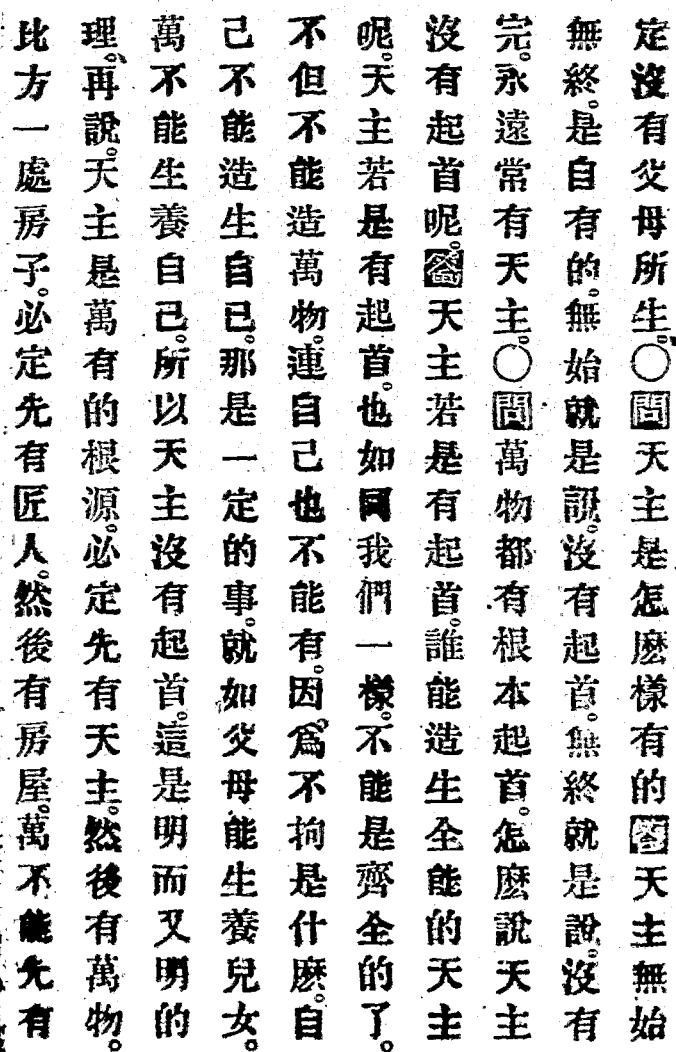 定沒有父母所生。○問天主是怎麽樣有的答天主無始
無終。是自有的。無始就是說。沒有起首。無終就是說。沒有
完。永遠常有天主。○問萬物都有根本起首。怎麽說天主
沒有起首呢。答天主若是有起首。誰能造生全能的天主
呢。天主若是有起首。也如同我們一樣。不能是齊全的了。
不但不能造萬物。連自己也不能有。因爲不拘是什麽。自
己不能造生自已。那是一定的事。就如父母能生養兒女。
萬不能生養自己。所以天主沒有起首。這是明而又明的
理。再說。天主是萬有的根源。必定先有天主。然後有萬物。
比方一處房子。必定先有匠人。然後有房屋。萬不能先有